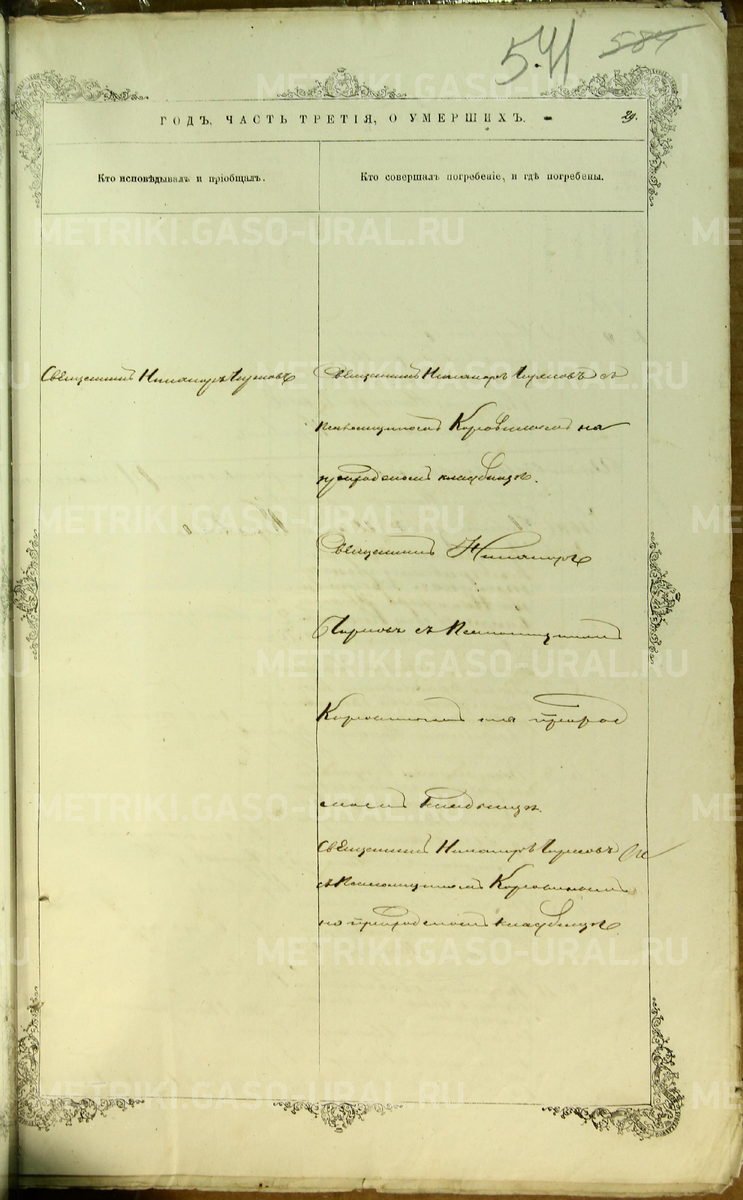 541 584
ГОДЪ, ЧАСТЬ ТРЕТІЯ, О УМЕРШИХЪ.
29.
Кто исповѣдывалъ и пріобщалъ.
Кто совершалъ погребеніе, и гдѣ погребены.
Священникъ Никаноръ
Священникъ Никаноръ съ
Псаломщикомъ Коровинымъ на
приходскомъ кладбищѣ.
Священникъ Никаноръ
съ Псаломщикомъ
Коровинымъ на приход
скомъ кладбищѣ.
Священникъ Никаноръ
съ Псаломщикомъ Коровинымъ
на приходскомъ кладбищѣ.
METRIKI.GASO-URAL.RU